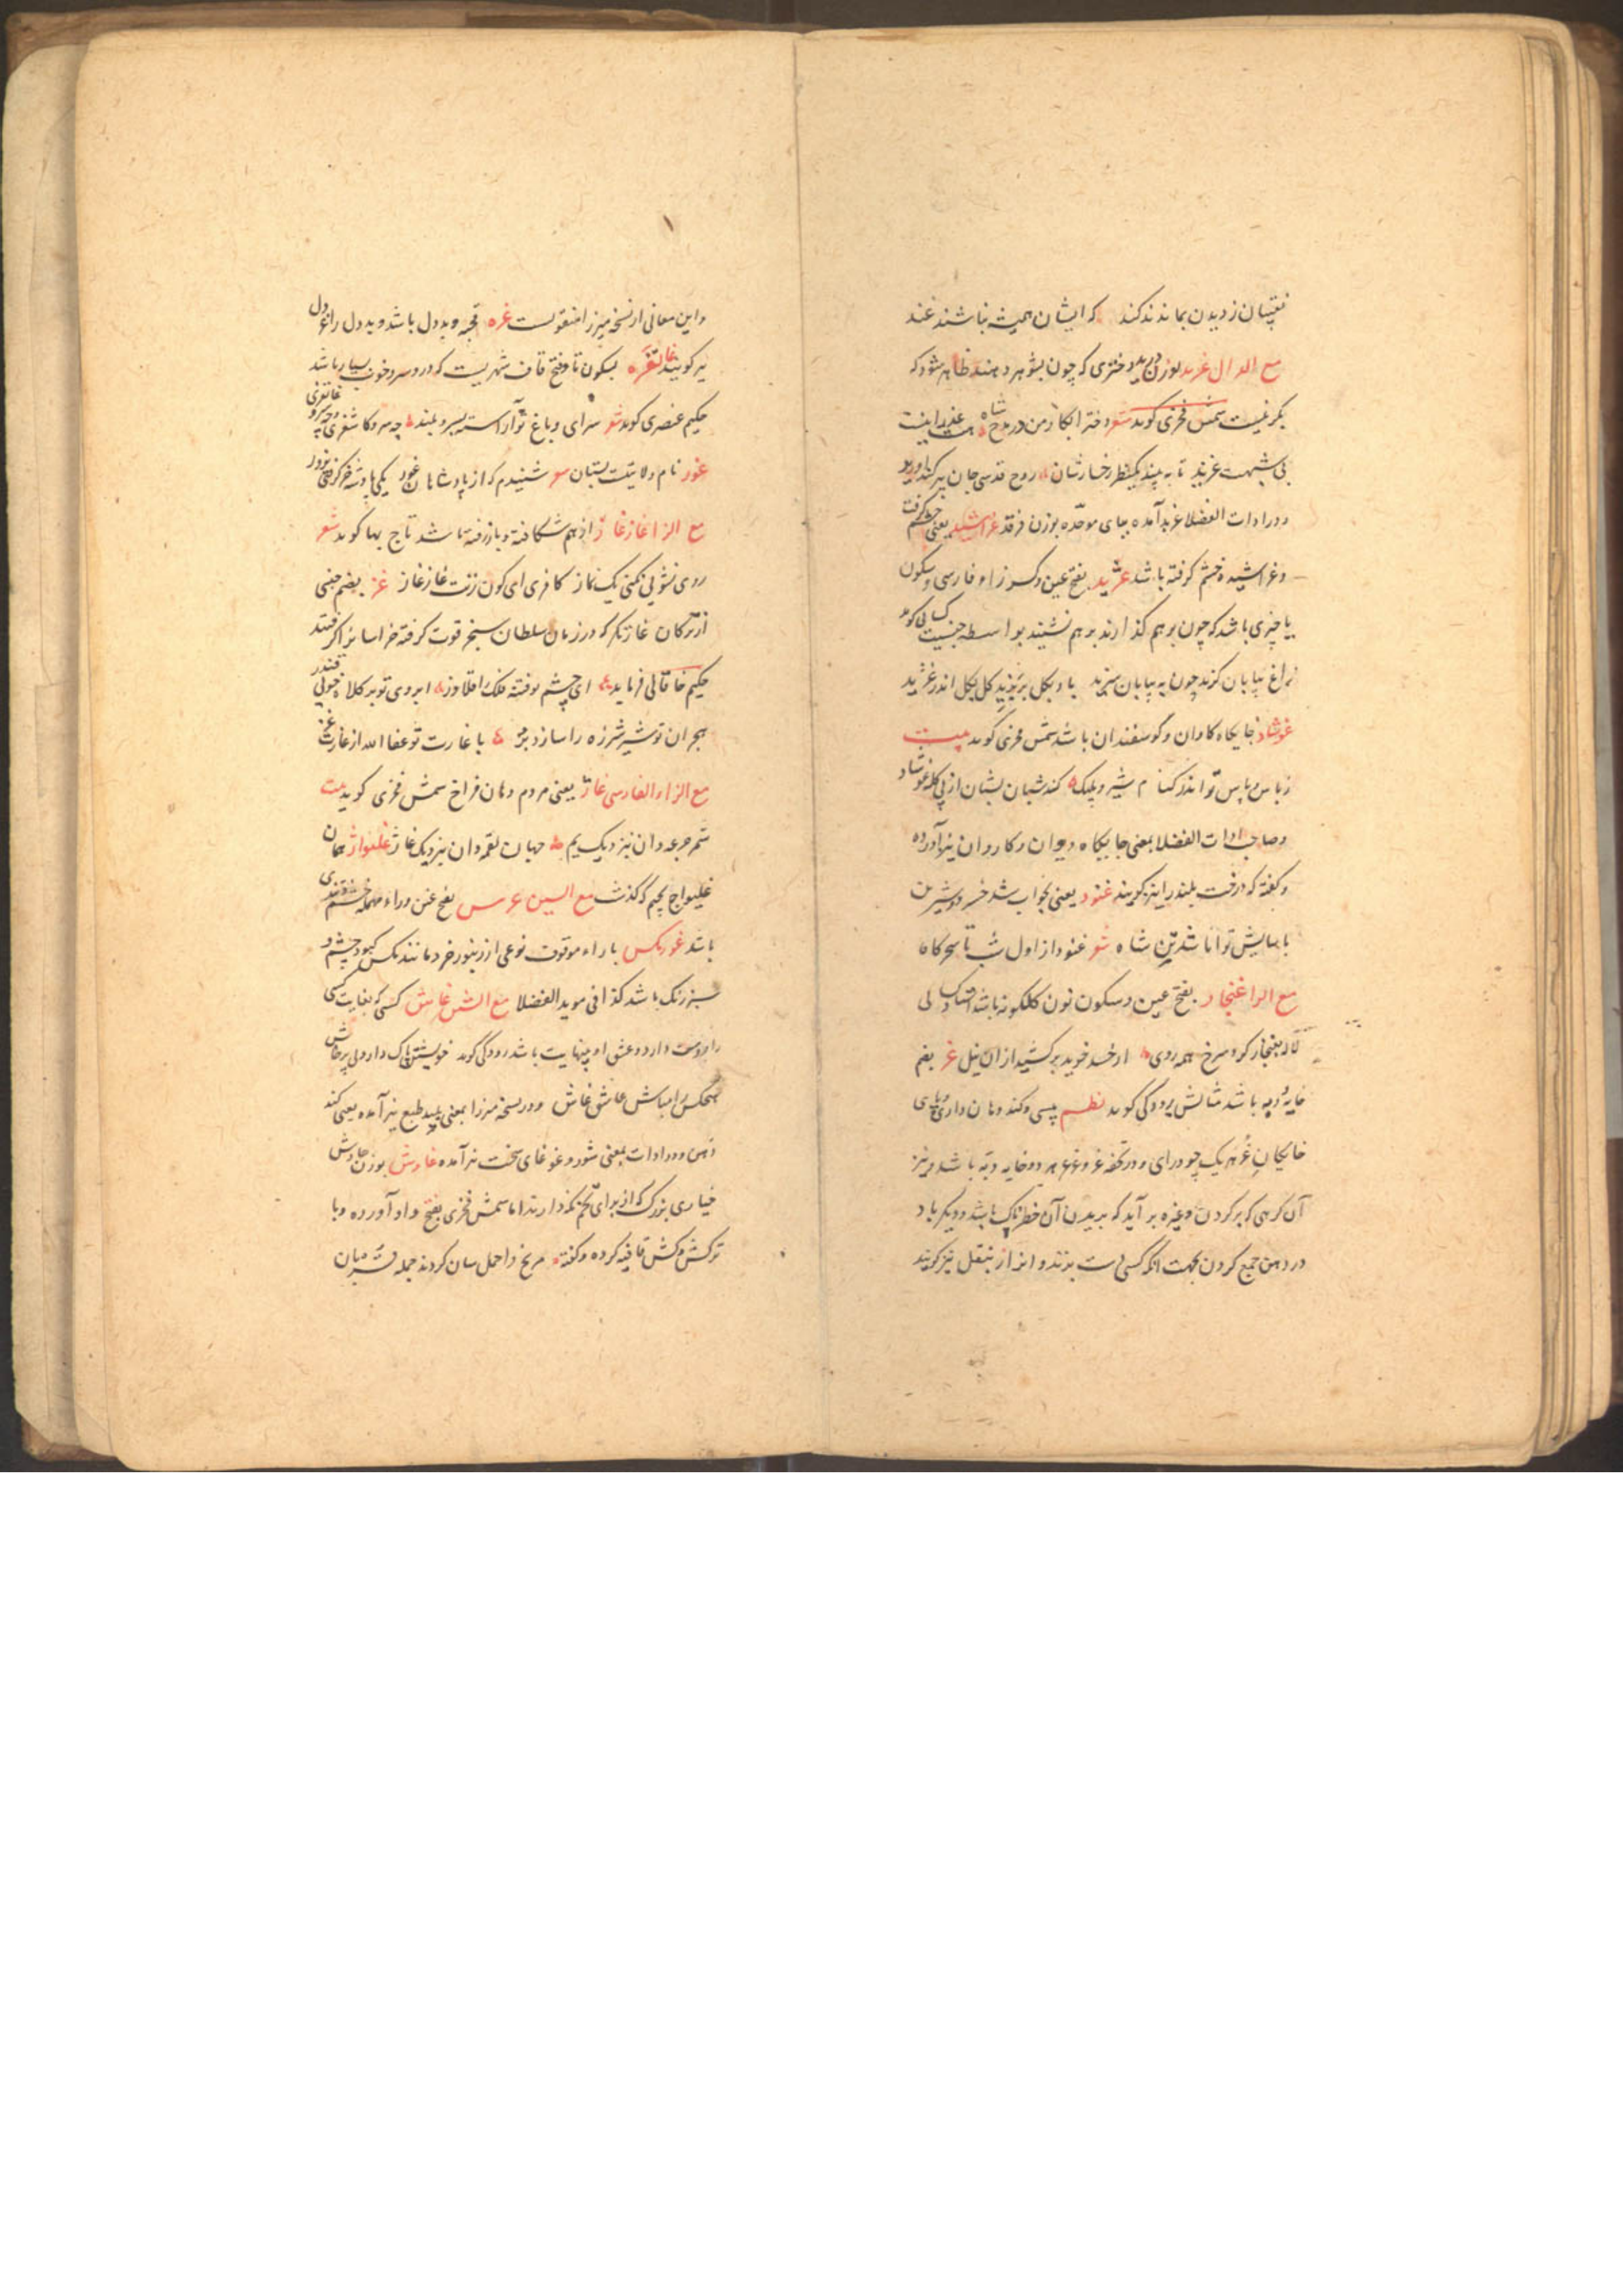 نقیبان ز دیدن بماند ند کند که ایشان همیشه نباشند غند
مع الدال غرند بوزن دختری که چون بشوهر دهند ظاهر شود که
بکر نیست شمس فخری کوید شعر دختر انکار من در مدح شاه
بی شبهت غرند تا به بیند یکنظر رخسارشان روح قدسی جان
و در ادات الفضلا غرند آمده بجای موحده بوزن فرقد یعنی خشم گرفت
و غراشیده خشم گرفته باشد غژید بفتح عین و کسر زاء فارسی و سکون
یا چیزی باشد که چون بر هم گذارند بر هم نشیند بواسطه
زاغ بیابان گزید چون به بیابان سزید باد بکل بر بزید کل بکل اندر غژید
غوشاد جایگاه کاوان و گوسفندان باشد شمس فخری کوید بیت
ز باس و پاس تو اندر کنام شیر و پلنگ کند شبان بشبان از پی کله غوشاد
و صاحب ادات الفضلا بمعنی جایگاه دیوان و کاروان نیز آورده
و گفته که درخت بلند را نیز گویند غنود یعنی بخواب شد خسرو و شیرین
باسایش توانا شد تن شاه شعر غنود از اول شب تا سحرگاه
مع الرا غنجار بفتح عین و سکون نون گلگونه باشد
لاله بغنجار کرد سرخ همه روی از حسد خوید برکشید از ان نیل غر بضم
خایه دبه باشد مثالش رودکی کوید نظم پیسی و کند دهان داری
خایگان غر هر یک چو درای و در تحفه غر و غرغر هر دو خایه دبه باشد و نیز
آن گرهی که بر گردن و غیره بر آید که بریدن آن خطرناک باشد و دیگر باد
در دهن جمع کردن بجهت انکه کسی دست بزند و انرا زنبغل نیز گویند
و این معانی از نسخه میرزا منقولست غره قحبه و بددل باشد و بددل را غردل
نیز گویند غاتفره بسکون تا و فتح قاف شهریست که در و سرو خوب بسیار باشد
حکیم عنصری کوید شعر سرای و باغ تو آراسته بسرو بلند چه سرو کاشغری و چه سرو غاتفری
غور نام ولایتست بستان شنیدم که از پادشاهان غور یکی پادشه خر گرفتی بزور
مع الزا غاز غاز از هم شکافته و بازرفته باشد تاج بها کوید شعر
روی نشویی نکنی یک نماز کافری ای کون زنت غاز غاز غز بضم جنسی
از ترکان غازیگر که در زمان سلطان سنجر قوت گرفته خراسانرا گرفتند
حکیم خاقانی فرماید ای چشم تو فتنه فلک را قلاوز ابروی تو بر کلاه خوبی قندز
هجران تو شیر شرزه را سازد بز با غارت تو عفا الله از غارت غز
مع الزاء الفارسی غاژ یعنی مردم دهان فراخ شمس فخری کوید بیت
جرعه دان نزدیک یم جهان لقمه دان نزدیک غاژ غلیواژ همان
غلیواج بجیم که گذشت مع السین غرس بفتح غین وراء مهمله خشم و تندی
باشد غورمکس باراء موقوف نوعی از زنبور خرد مانند مکس کبود چشم و
سبز رنگ باشد کذا فی موید الفضلا مع الشین غاش کسی که بغایت کسی
را دوست دارد و عشق او بنهایت باشد رودکی کوید خویشتن پاک دار و بی پرخاش
هیچکس را مباش عاشق غاش و در نسخه میرزا بمعنی پلید طبع نیز آمده یعنی کند
ذهن و در ادات بمعنی شور و غوغای سخت نیز آمده غاوش بوزن چاوش
خیاری بزرگ که از برای تخم نگه دارند اما شمس فخری بفتح واو آورده و با
ترکش و کش قافیه کرده و گفته مریخ را حمل سان کردند جمله قربان